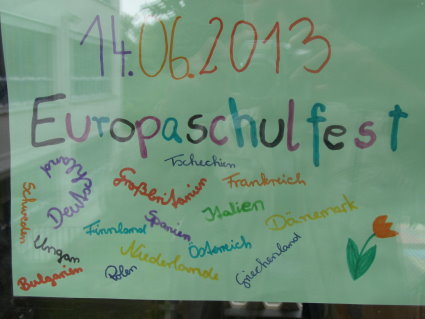 14.06.2013
Europaschulfest
Tschechien
Deutschland
Großbritanien
Frankreich
Schweden
Spanien
Italien
Dänemark
Finnland
Ungarn
Niederlande
Österreich
Griechenland
Bulgarien
Polen